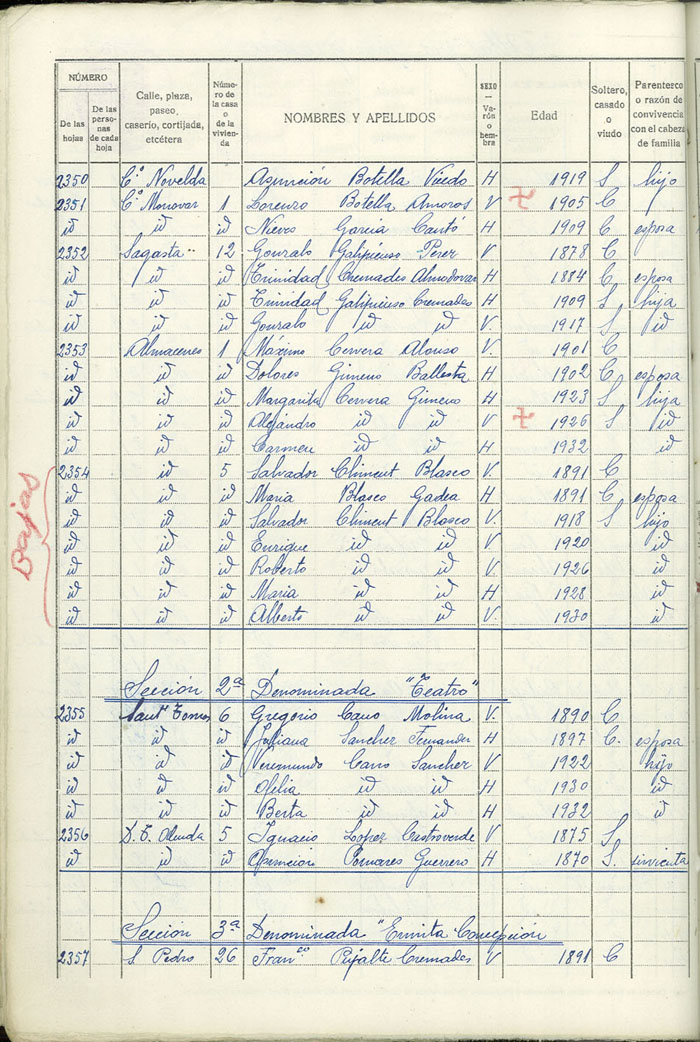 NÚMERO
De las hojas
De las perso- nas de cada hoja
Calle, plaza, paseo, caserío, cortijada, etcétera
Núme- ro de la casa o de la vivien- da
NOMBRES Y APELLIDOS
SEXO — Va- rón o hem- bra
Edad
Soltero, casado o viudo
Parentesco o razón de convivencia con el cabeza de familia
2350 C.º Novelda Asunción Botella H 1919 S hijo
2351 C.º Monovar 1 Lorenzo Botella Amoros V 1905 C
id id id Nieves Garcia Cantó H 1909 C esposa
2352 Sagasta 12 Gonzalo Galipienso Perez V 1878 C
id id id Trinidad Cremades Almodovar H 1884 C esposa
id id id Trinidad Galipienso Cremades H 1909 S hija
id id id Gonzalo id id V. 1917 S id
2353 Almacenes 1 Máximo Cervera Alonso V. 1901 C
id id id Dolores Gimeno Ballesta H 1902 C esposa
id id id Margarita Cervera Gimeno H 1923 S hija
id id id Alejandro id id V 1926 S id
id id id Carmen id id H 1932 id
Bajas
2354 id 5 Salvador Climent Blasco V. 1891 C
id id id Maria Blasco Gadea H 1891 C esposa
id id id Salvador Climent Blasco V. 1918 S hijo
id id id Enrique id id V 1920 id
id id id Roberto id id V 1926 id
id id id Maria id id H 1928 id
id id id Alberto id id V. 1930 id
Sección 2ª Denominada "Teatro"
2355 6 Gregorio Cano Molina V. 1890 C
id id id Juliana Sanchez Fernandez H 1897 C. esposa
id id id Veremundo Cano Sanchez V 1922 hijo
id id id Ofelia id id H 1930 id
id id id Berta id id H 1932 id
2356 5 Ignacio Lopez Castroverde V 1875 S
id id id Pomares Guerrero H 1870 S. sirvienta
Sección 3ª Denominada "Ermita Concepción
2357 S. Pedro 26 Franco Cremades V 1891 C